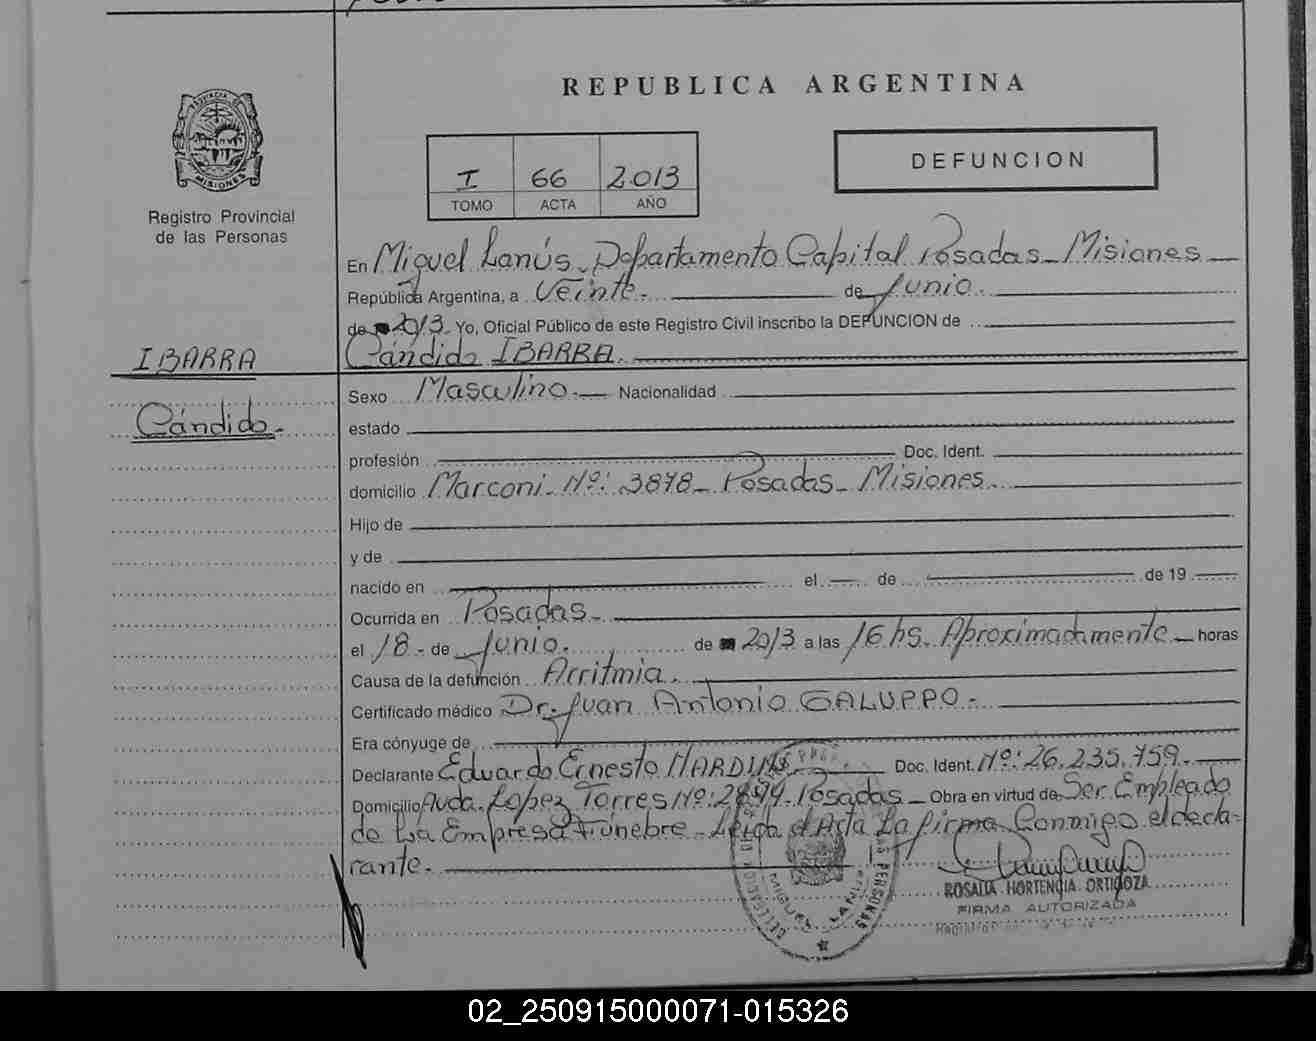 REPUBLICA ARGENTINA
PROVINCIA DE
MISIONES
Registro Provincial
de las Personas
I 66 2013
TOMO ACTA AÑO
DEFUNCION
En Miguel Lanús. Departamento Capital Posadas_ Misiones
República Argentina, a Veinte. de Junio.
de 2013. Yo, Oficial Público de este Registro Civil inscribo la DEFUNCION de
Cándido IBARRA.
IBARRA
Cándido.
Sexo Masculino. Nacionalidad
estado
profesión Doc. Ident.
domicilio Marconi. Nº: 3878_ Posadas_ Misiones.
Hijo de
y de
nacido en el de de 19
Ocurrida en Posadas.
el 18. de Junio. de 2013 a las 16 hs. Aproximadamente horas
Causa de la defunción Arritmia.
Certificado médico Dr. Juan Antonio GALUPPO.
Era cónyuge de
Declarante Eduardo Ernesto Doc. Ident. Nº: 26.235.759.
Domicilio Avda. Lopez Torres Nº: Posadas_ Obra en virtud de Ser Empleado
de La Empresa Fúnebre_ Leída el Acta La firma Conmigo el decla-
rante.
ROSALIA HORTENCIA ORTIGOZA
FIRMA AUTORIZADA
MIGUEL LANUS
02_250915000071-015326